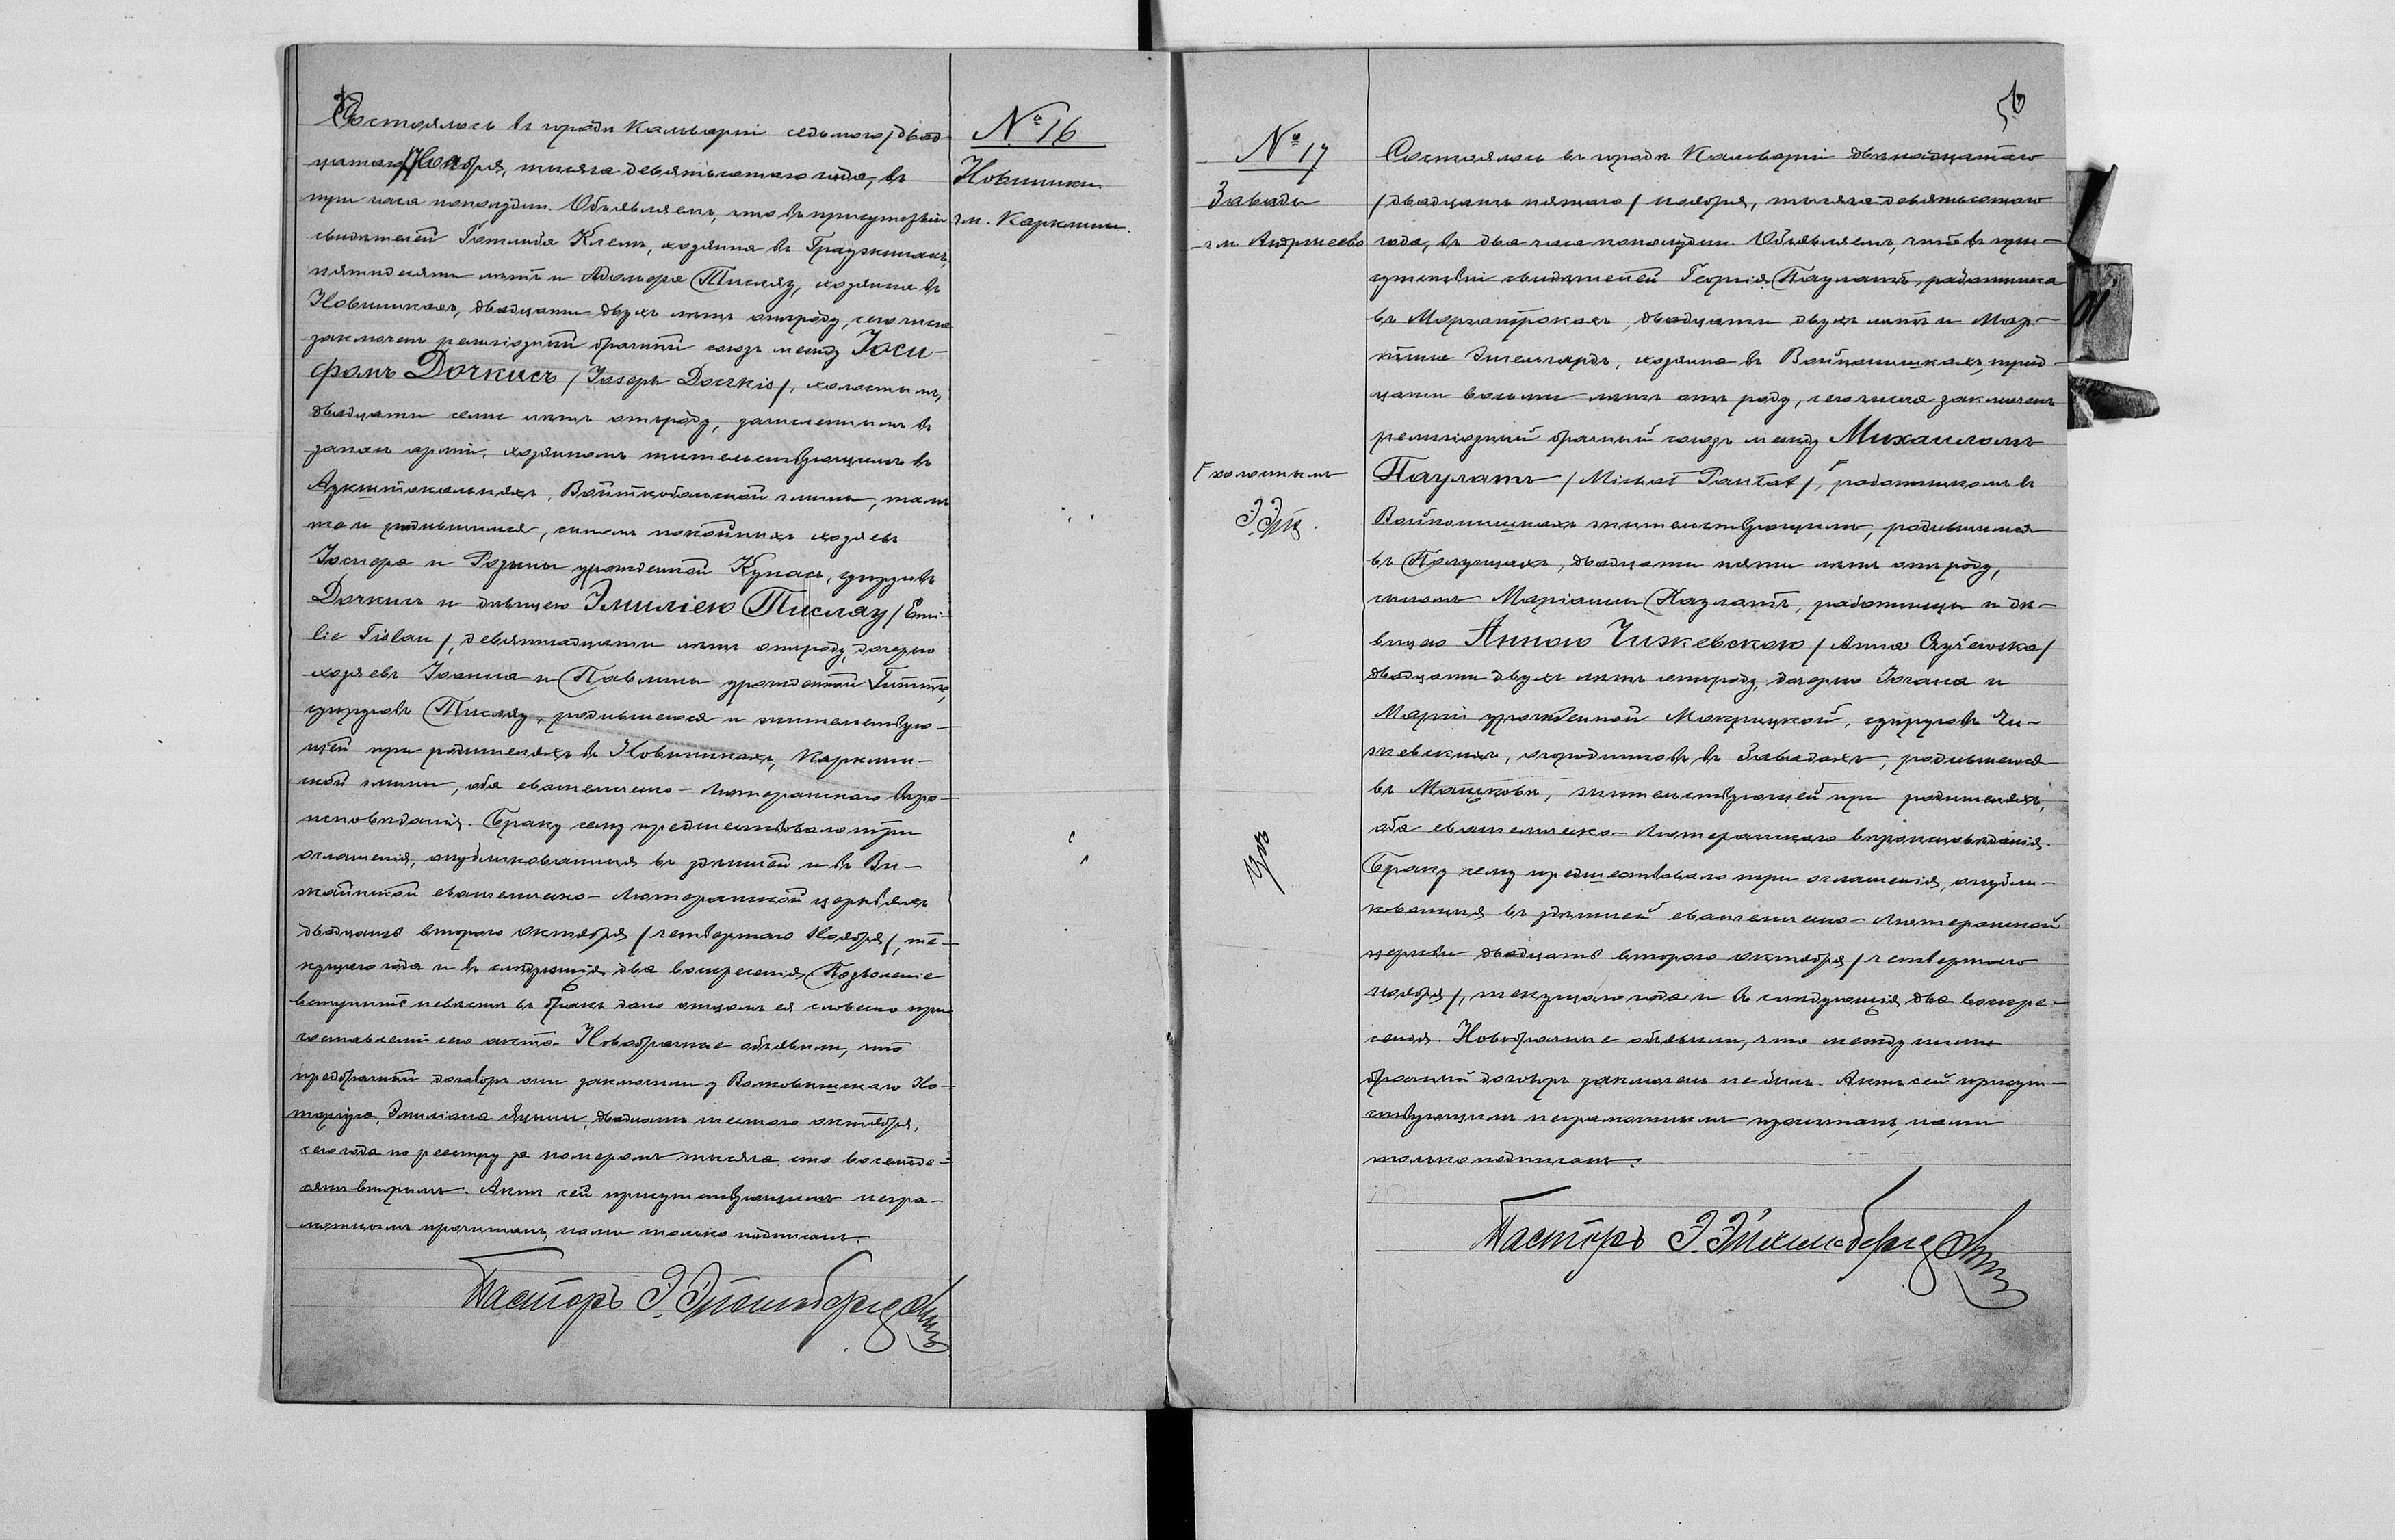 Состоялось въ городѣ Кальваріи седьмого /двад-
цатаго/ Ноября, тысяча девятьсотаго года, въ
три часа пополудни. Объявляемъ, что въ присутствіи
свидѣтелей Готлиба Клемъ, хозяина въ Граужинахъ,
пятидесяти лѣтъ и Адольфа Тислау, хозяина въ
Новиникахъ, двадцати двухъ лѣтъ отъ роду, сего числа
заключенъ религіозный брачный союзъ между Іоси-
фомъ Дочкисъ /Joseph Doczkis/, холостымъ,
двадцати семи лѣтъ отъ роду, зачисленнымъ въ
запасъ арміи, хозяиномъ жительствующимъ въ
Аукштокальняхъ, Войткобольской гмины, тамъ
же и родившимся, сыномъ покойныхъ хозяевъ
и Розины урожденной Кунасъ, супруговъ
Дочкисъ и дѣвицею Эмиліею Тислау /Emi-
lie Tislau/, девятнадцати лѣтъ отъ роду, дочерью
хозяевъ Іоанна и Павлины урожденной
супруговъ Тислау, родившеюся и жительствую-
щей при родителяхъ въ Новиникахъ, Карклин-
ской гмины, оба евангелическо-лютеранскаго вѣро-
исповѣданія. Браку сему предшествовало три
оглашенія, опубликованныя въ здѣшней и въ Ви-
жайнской евангелическо-лютеранской церквахъ
двадцать второго октября /четвертаго Ноября/, те-
кущаго года и въ слѣдующія два воскресенія. Позволеніе
вступить невѣстѣ въ бракъ дано отцомъ ея словесно при
составленіи сего акта. Новобрачные объявили, что
предбрачный договоръ они заключили у Волковышскаго Но-
таріуса, двадцать шестого октября,
сего года по реестру за номеромъ тысяча сто восемьде-
сятъ вторымъ. Актъ сей присутствующимъ негра-
мотнымъ прочитанъ, нами только подписанъ.
Пасторъ Э.
№ 16
Новиники
гм. Карклины.
56
№ 17
Завады
гм. Андржеево
холостымъ
Состоялось въ городѣ Кальваріи двѣнадцатаго
/двадцать пятаго/ ноября, тысяча девятьсотаго
года, въ два часа пополудни. Объявляемъ, что въ при-
сутствіи свидѣтелей Георгія Паулатъ, работника
въ двадцати двухъ лѣтъ и Мар-
тина Энгельгардъ, хозяина въ Войпонишкахъ, трид-
цати восьми лѣтъ отъ роду, сего числа заключенъ
религіозный брачный союзъ между Михаиломъ
Паулатъ /Michał Paułat/, работникомъ въ
Войпонишкахъ жительствующимъ, родившимся
въ двадцати пяти лѣтъ отъ роду,
сыномъ Маріанны Паулатъ, работницы и дѣ-
вицею Анною Чижевскою /Anna Czyżewska/
двадцати двухъ лѣтъ отъ роду, дочерью Іогана и
Маріи урожденной Мокрицкой, супруговъ Чи-
жевскихъ, огородниковъ въ Завадахъ, родившеюся
въ Мацковѣ, жительствующей при родителяхъ,
оба евангелическо-лютеранскаго вѣроисповѣданія.
Браку сему предшествовало три оглашенія, опубли-
кованныя въ здѣшней евангелическо-лютеранской
церкви двадцать второго октября /четвертаго
ноября/, текущаго года и въ слѣдующія два воскре-
сенія. Новобрачные объявили, что между ними
брачный договоръ заключенъ не былъ. Актъ сей присут-
ствующимъ неграмотнымъ прочитанъ, нами
только подписанъ.
Пасторъ Э.